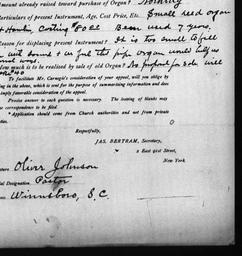 Amount already raised toward purchase of Organ? Nothing
Particulars of present Instrument, Age, Cost Price, Etc. Small reed organ
Costing $80.00 Been used 7 years.
Reason for displacing present Instrument? It is too small to fill
we feel the pipe organ would help us
much is to be realised by sale of old Organ? No prospect for sale will
To facilitate Mr. Carnegie's consideration of your appeal, will you oblige by
in the above, which is sent for the purpose of summarising information and does
imply favorable consideration of the appeal.
Precise answer to each question is necessary. The leaving of blanks may
correspondence to be ignored.
* Application should come from Church authorities and not from private
parties.
Respectfully,
JAS. BERTRAM, Secretary,
2 East 91st Street,
New York.
Oliver Johnson
Official Designation. Pastor
Winnsboro, S.C.